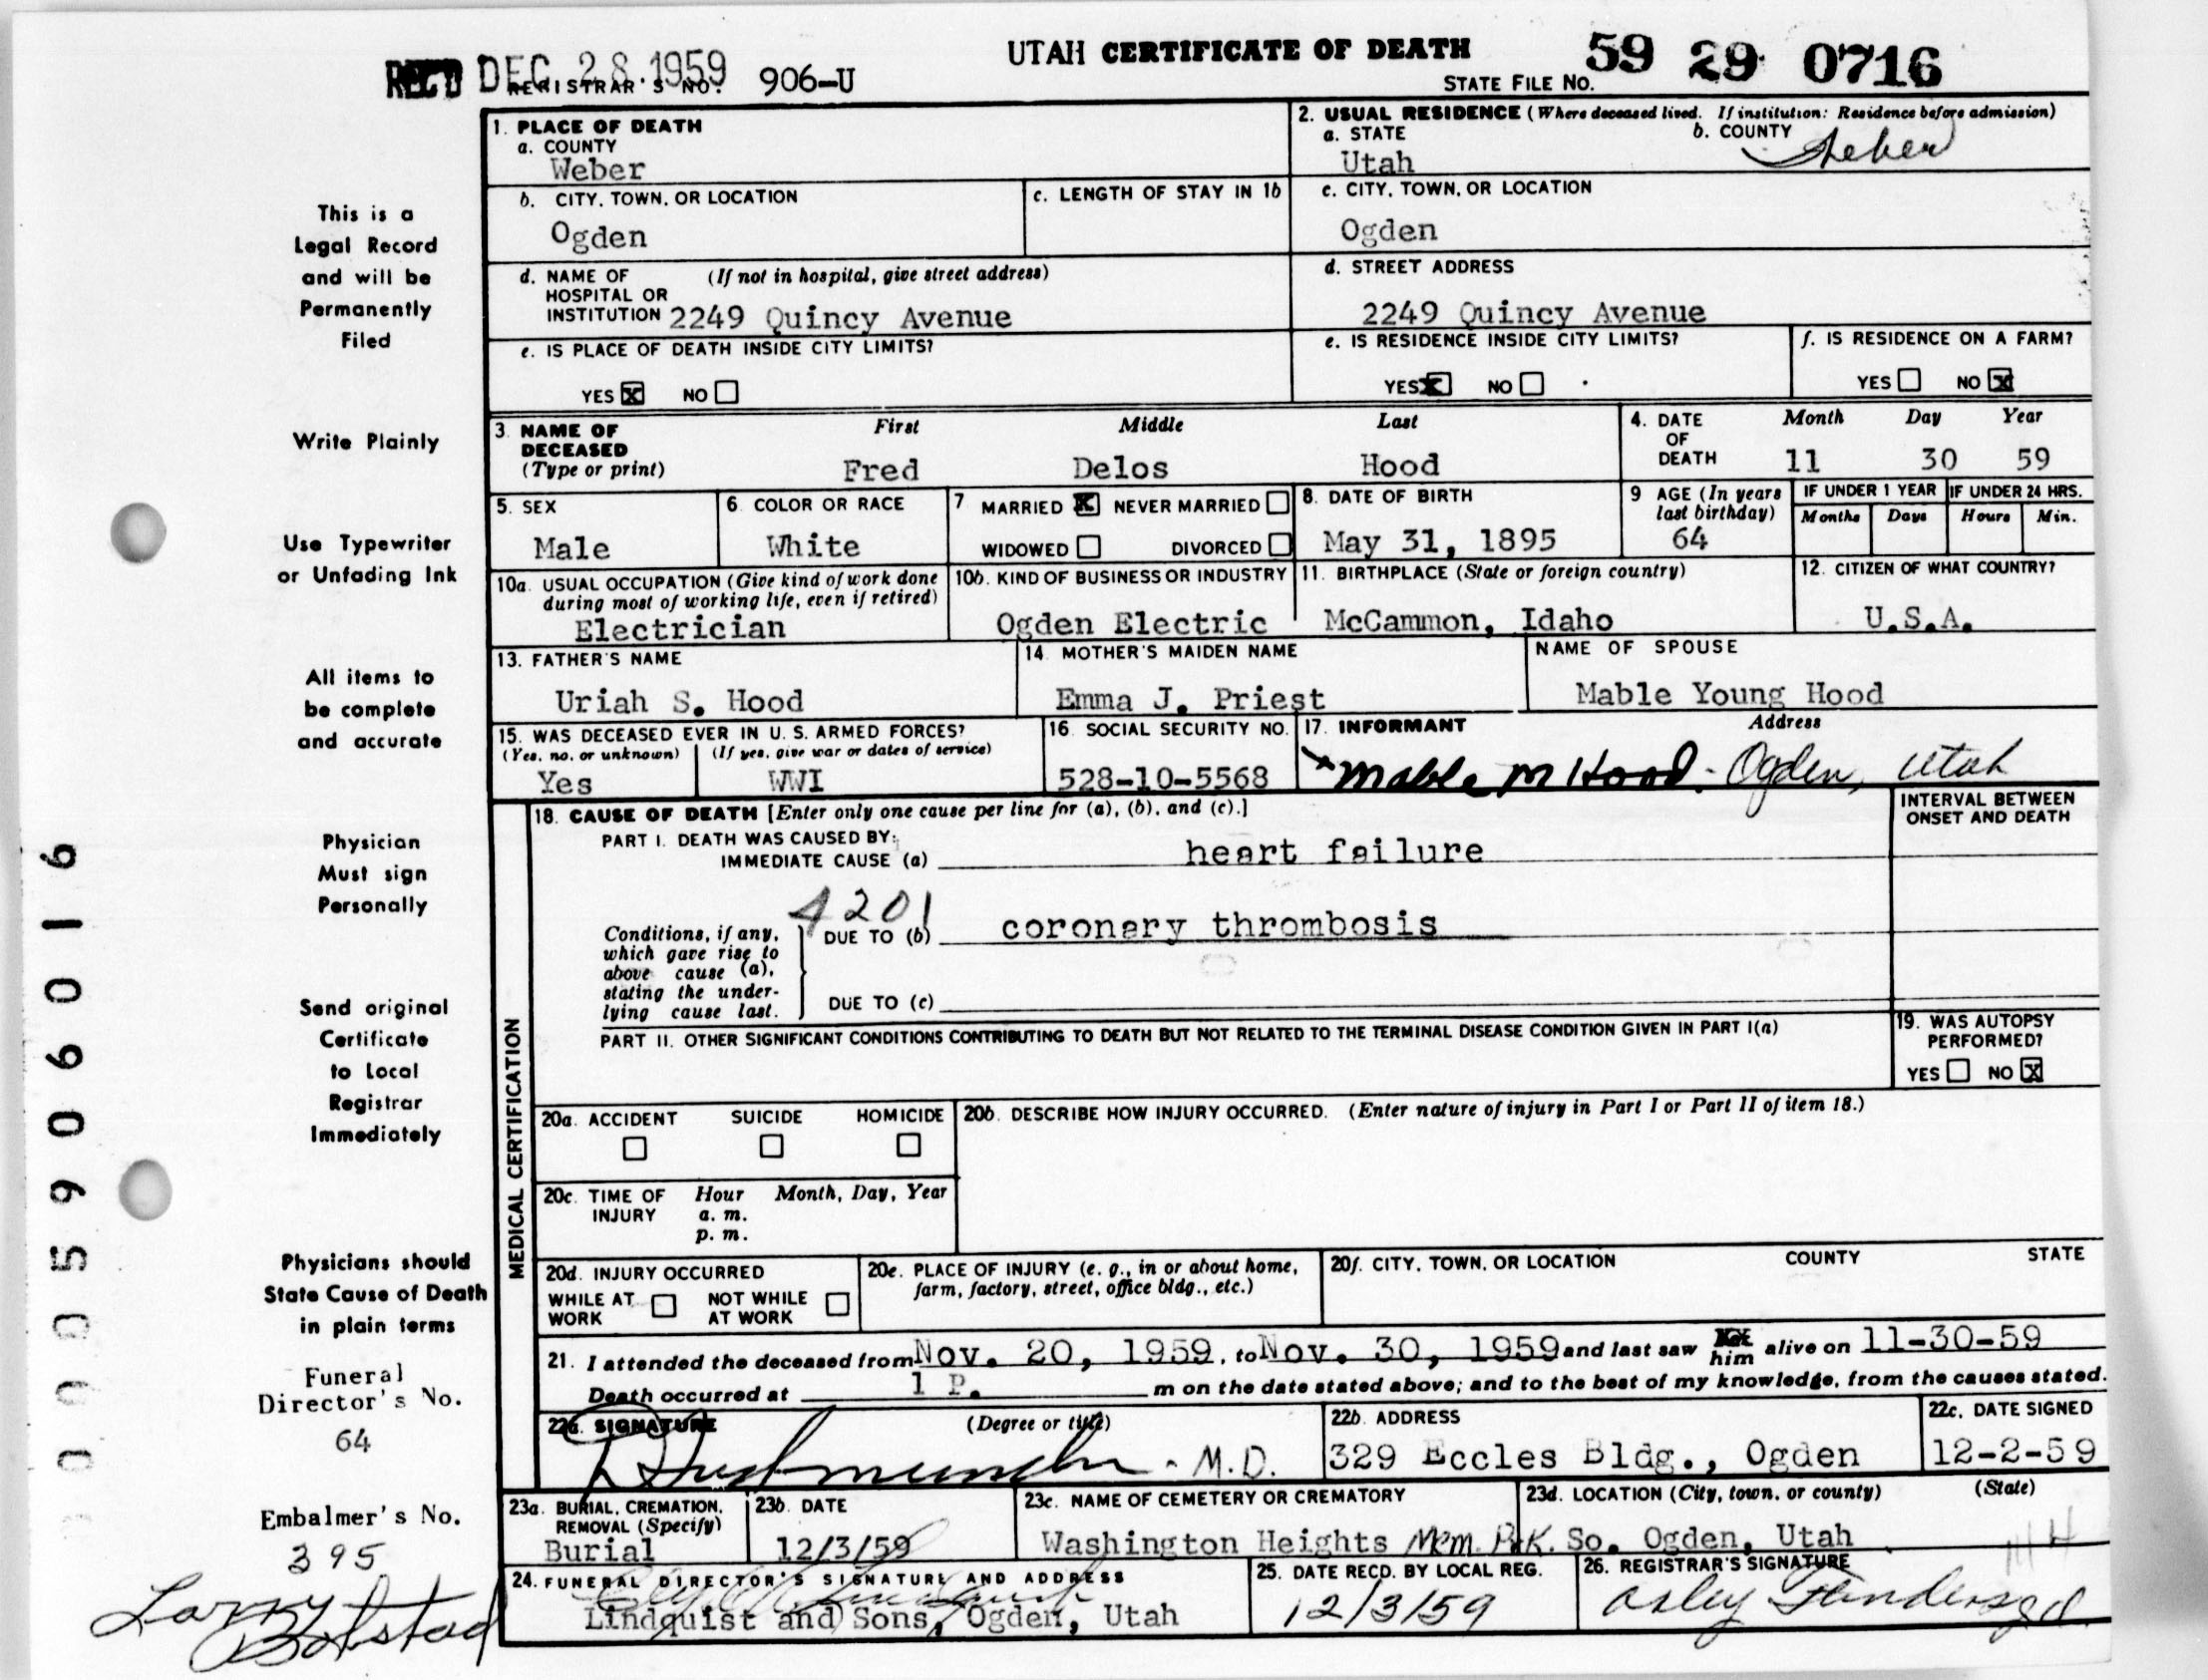 UTAH CERTIFICATE OF DEATH
REC'D DEC 28 1959
REGISTRAR'S NO. 906-U
STATE FILE NO. 59 29 0716
This is a
Legal Record
and will be
Permanently
Filed
Write Plainly
Use Typewriter
or Unfading Ink
All items to
be complete
and accurate
Physician
Must sign
Personally
Send original
Certificate
to Local
Registrar
Immediately
Physicians should
State Cause of Death
in plain terms
Funeral
Director's No.
64
Embalmer's No.
395
Larry
Botstad
0005906016
1. PLACE OF DEATH
a. COUNTY
Weber
2. USUAL RESIDENCE (Where deceased lived. If institution: Residence before admission)
a. STATE
Utah
b. COUNTY
Weber
b. CITY, TOWN, OR LOCATION
Ogden
c. LENGTH OF STAY IN 1b
c. CITY, TOWN, OR LOCATION
Ogden
d. NAME OF (If not in hospital, give street address)
HOSPITAL OR
INSTITUTION 2249 Quincy Avenue
d. STREET ADDRESS
2249 Quincy Avenue
e. IS PLACE OF DEATH INSIDE CITY LIMITS?
YES X NO
e. IS RESIDENCE INSIDE CITY LIMITS?
YES X NO
f. IS RESIDENCE ON A FARM?
YES NO X
3. NAME OF DECEASED (Type or print)
First Middle Last
Fred Delos Hood
4. DATE OF DEATH
Month Day Year
11 30 59
5. SEX
Male
6. COLOR OR RACE
White
7 MARRIED X NEVER MARRIED
WIDOWED DIVORCED
8. DATE OF BIRTH
May 31, 1895
9 AGE (In years last birthday)
64
IF UNDER 1 YEAR
Months Days
IF UNDER 24 HRS.
Hours Min.
10a. USUAL OCCUPATION (Give kind of work done
during most of working life, even if retired)
Electrician
10b. KIND OF BUSINESS OR INDUSTRY
Ogden Electric
11. BIRTHPLACE (State or foreign country)
McCammon, Idaho
12. CITIZEN OF WHAT COUNTRY?
U.S.A.
13. FATHER'S NAME
Uriah S. Hood
14. MOTHER'S MAIDEN NAME
Emma J. Priest
NAME OF SPOUSE
Mable Young Hood
15. WAS DECEASED EVER IN U. S. ARMED FORCES?
(Yes, no, or unknown) (If yes, give war or dates of service)
Yes WWI
16. SOCIAL SECURITY NO.
528-10-5568
17. INFORMANT Address
Mable M Hood - Ogden, Utah
MEDICAL CERTIFICATION
18. CAUSE OF DEATH [Enter only one cause per line for (a), (b), and (c).]
INTERVAL BETWEEN
ONSET AND DEATH
PART I. DEATH WAS CAUSED BY:
IMMEDIATE CAUSE (a) heart failure
4201
Conditions, if any,
which gave rise to
above cause (a),
stating the under-
lying cause last.
DUE TO (b) coronary thrombosis
DUE TO (c)
PART II. OTHER SIGNIFICANT CONDITIONS CONTRIBUTING TO DEATH BUT NOT RELATED TO THE TERMINAL DISEASE CONDITION GIVEN IN PART I(a)
19. WAS AUTOPSY
PERFORMED?
YES NO X
20a. ACCIDENT SUICIDE HOMICIDE
20b. DESCRIBE HOW INJURY OCCURRED. (Enter nature of injury in Part I or Part II of item 18.)
20c. TIME OF INJURY
Hour Month, Day, Year
a. m.
p. m.
20d. INJURY OCCURRED
WHILE AT WORK NOT WHILE AT WORK
20e. PLACE OF INJURY (e. g., in or about home,
farm, factory, street, office bldg., etc.)
20f. CITY, TOWN, OR LOCATION COUNTY STATE
21. I attended the deceased from Nov. 20, 1959, to Nov. 30, 1959 and last saw him alive on 11-30-59
Death occurred at 1 P. m on the date stated above; and to the best of my knowledge, from the causes stated.
22a. SIGNATURE (Degree or title)
M.D.
22b. ADDRESS
329 Eccles Bldg., Ogden
22c. DATE SIGNED
12-2-59
23a. BURIAL, CREMATION,
REMOVAL (Specify)
Burial
23b. DATE
12/3/59
23c. NAME OF CEMETERY OR CREMATORY
Washington Heights Mem. Pk.
23d. LOCATION (City, town, or county) (State)
So. Ogden, Utah
24. FUNERAL DIRECTOR'S SIGNATURE AND ADDRESS
Lindquist and Sons, Ogden, Utah
25. DATE RECD. BY LOCAL REG.
12/3/59
26. REGISTRAR'S SIGNATURE